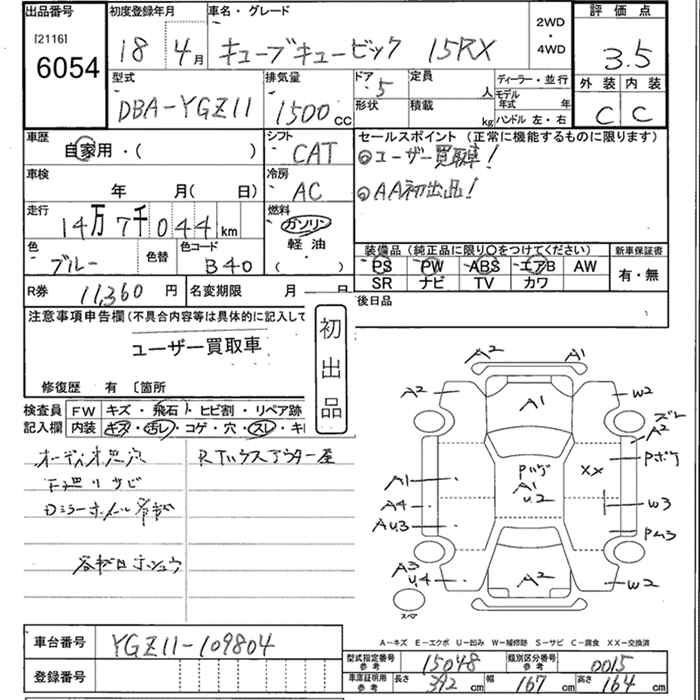 出品番号
[2116]
6054
初度登録年月
18年 4月
車名・グレード
キューブキュービック 15RX
2WD
・
4WD
評価点
3.5
外装 内装
C C
型式
DBA-YGZ11
排気量
1500 cc
ドア 5
形状
定員 人
積載 kg
ディーラー・並行
モデル年式 年
ハンドル 左・右
車歴
自家用・( )
シフト
CAT
セールスポイント (正常に機能するものに限ります)
◎ユーザー買取車!
◎AA初出品!
車検
年 月( 日)
冷房
AC
走行
14万7千044km
燃料
ガソリン
軽油
( )
色
ブルー
色替
色コード
B40
装備品 (純正品に限り○をつけてください)
PS PW ABS エアB AW
SR ナビ TV カワ
新車保証書
有・無
R券 11,360 円
名変期限 月 日
後日品
注意事項申告欄 (不具合内容等は具体的に記入して
ユーザー買取車
修復歴 有 〔箇所
初出品
検査員
記入欄
FW キズ・飛石・ヒビ割・リペア跡
内装 キズ・汚レ・コゲ・穴・スレ・キ
下廻りサビ
A2 A1
A2 A1 W2
ズレ
A2
Pボケ
A1 Pハゲ XX
A1
U2
A4 W3
AU3 Pム3
A3
U,4 A2 W2
スペ
A-キズ E-エクボ U-凹み W-補修跡 S-サビ C-腐食 XX-交換済
車台番号
YGZ11-109804
登録番号
型式指定番号 参考 15048
類別区分番号 参考 0015
車庫証明用 参考 長さ 392 cm 幅 167 cm 高さ 164 cm